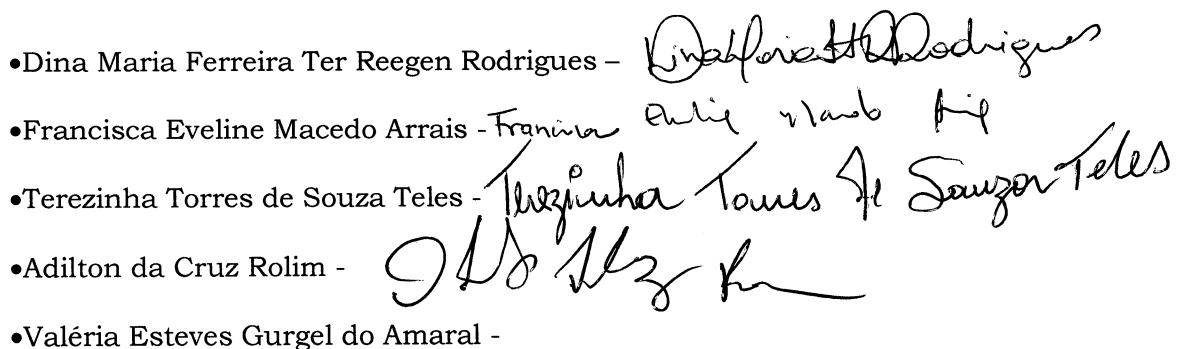 •Dina Maria Ferreira Ter Reegen Rodrigues – Rodrigues
•Francisca Eveline Macedo Arrais - Francisca
•Terezinha Torres de Souza Teles - Terezinha Torres de Souza Teles
•Adilton da Cruz Rolim -
•Valéria Esteves Gurgel do Amaral -